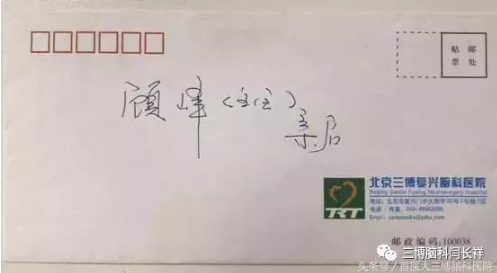 贴 邮
票 处
顾峰（主任）
亲启
北京三博复兴脑科医院
Beijing Sanbo Fuxing Neurosurgery Hospital
TRT
邮政编码:100038
三博脑科闫长祥
头条号/首医大三博脑科医院